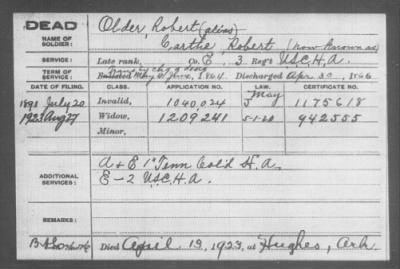 DEAD
NAME OF SOLDIER:
Older, Robert (alias)
Earthe, Robert (now known as)
SERVICE: Late rank, Co. E, 3 Reg't U.S.C.H.A.
TERM OF SERVICE: Enlisted May & June, 1864. Discharged Apr 30, 1866
DATE OF FILING. CLASS. APPLICATION NO. LAW. CERTIFICATE NO.
1891 July 20 Invalid, 1040,024 May 5 1175618
1923 Aug 27 Widow, 1209241 5-1-20 942555
Minor,
ADDITIONAL SERVICES:
A + E 1" Tenn Col'd H.A.
E-2 U.S.C.H.A.
REMARKS:
Died April 13, 1923, at Hughes, Ark.